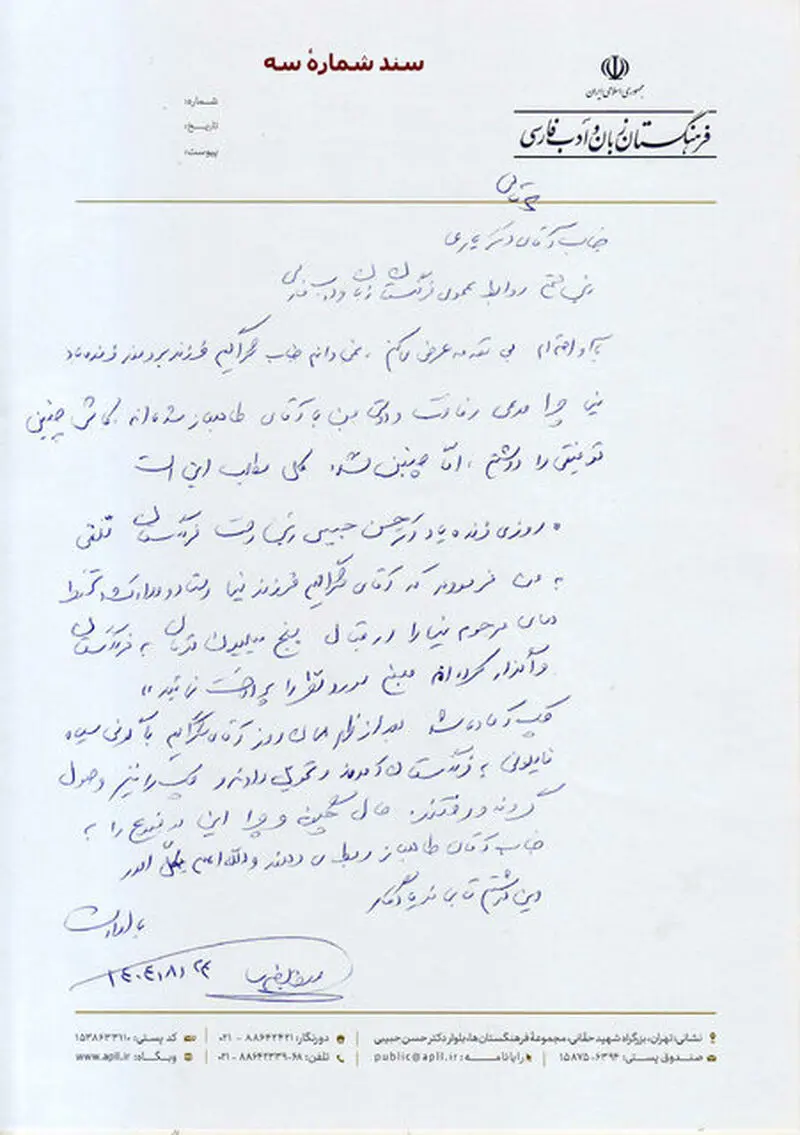 سند شمارهٔ سه
جمهوری اسلامی ایران
فرهنگستان زبان و ادب فارسی
شماره:
تاریخ:
پیوست:
جناب آقای دکتر
روابط عمومی فرهنگستان زبان و ادب فارسی
با احترام بی مقدمه عرض می‌کنم، نمی دانم جناب شراگیم فرزند برومند زنده یاد
نیما چرا مدعی رفاقت من با آقای طاهباز شده اند، کاش چنین
توفیقی را داشتم، امّا چنین نشد. کل مطلب این است
روزی زنده یاد دکتر حسن حبیبی ریاست فرهنگستان تلفنی
به من فرمودند که آقای شراگیم فرزند نیما اسناد و مدارک و دستخط
های مرحوم نیما را در قبال پنج میلیون تومان به فرهنگستان
واگذار کرده اند مبلغ مورد نظر را پرداخت نمایید»
چک آماده شد بعد از ظهر همان روز آقای شراگیم با گونی سیاه
نایلونی به فرهنگستان آمدند و تحویل دادند و چک را نیز وصول
کردند و رفتند. حال چگونه و چرا این موضوع را به
جناب آقای طاهباز ربط می دهند والله اعلم
این نوشتم تا بماند یادگار
با ارادت
۱۴۰۴/۸/۲۴
نشانی: تهران، بزرگراه شهید حقانی، مجموعهٔ فرهنگستان‌ها، بلوار دکتر حسن حبیبی
دورنگار: ۸۸۶۴۲۴۲۱ - ۰۲۱
کد پستی: ۱۵۳۸۶۳۳۱۱۰
صندوق پستی: ۶۳۹۴-۱۵۸۷۵
رایانامـه: public@apll.ir
تلفن: ۶۸-۸۸۶۴۲۳۳۹ - ۰۲۱
وبـگاه: www.apll.ir